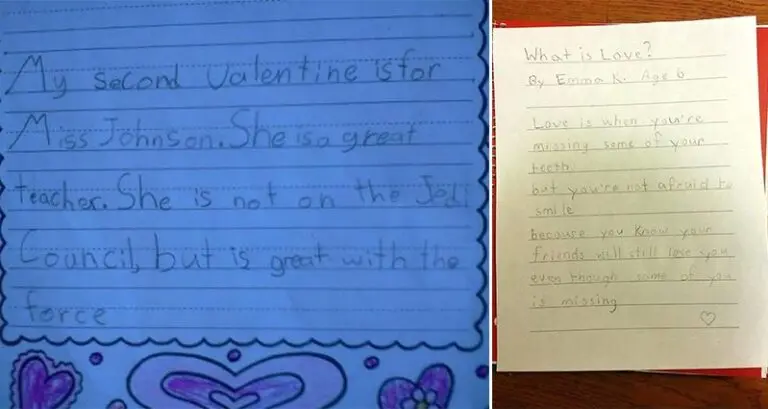 My second valentine is for
Miss Johnson. She is a great
teacher. She is not on the Jedi
Council, but is great with the
force
What is Love?
By Emma K. Age 6
Love is when you're
missing some of your
teeth
but you're not afraid to
smile
because you know your
friends will still love you
even though some of you
is missing